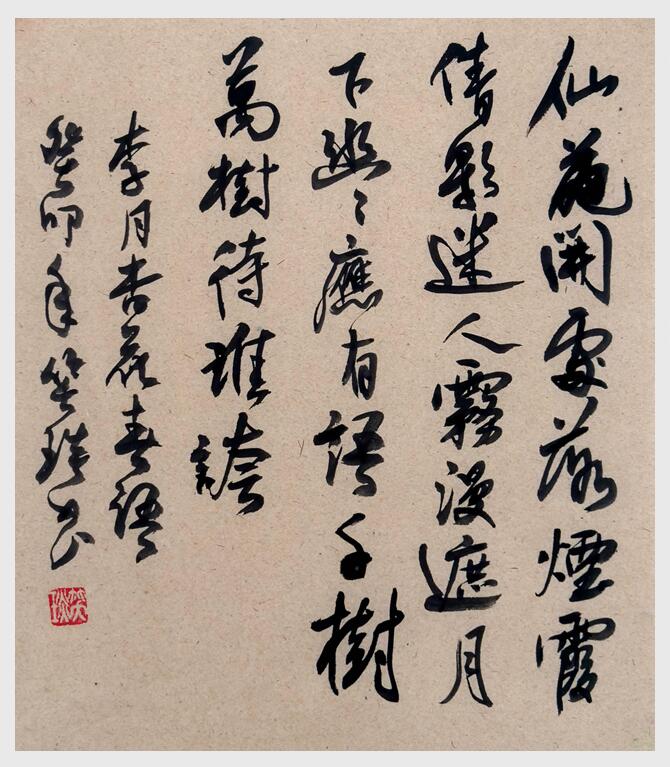 仙葩開處落煙霞
倩影迷人霧漫遮月
下幽〻應有語千樹
萬樹待誰誇
李月杏花春語
癸卯年笑琰书